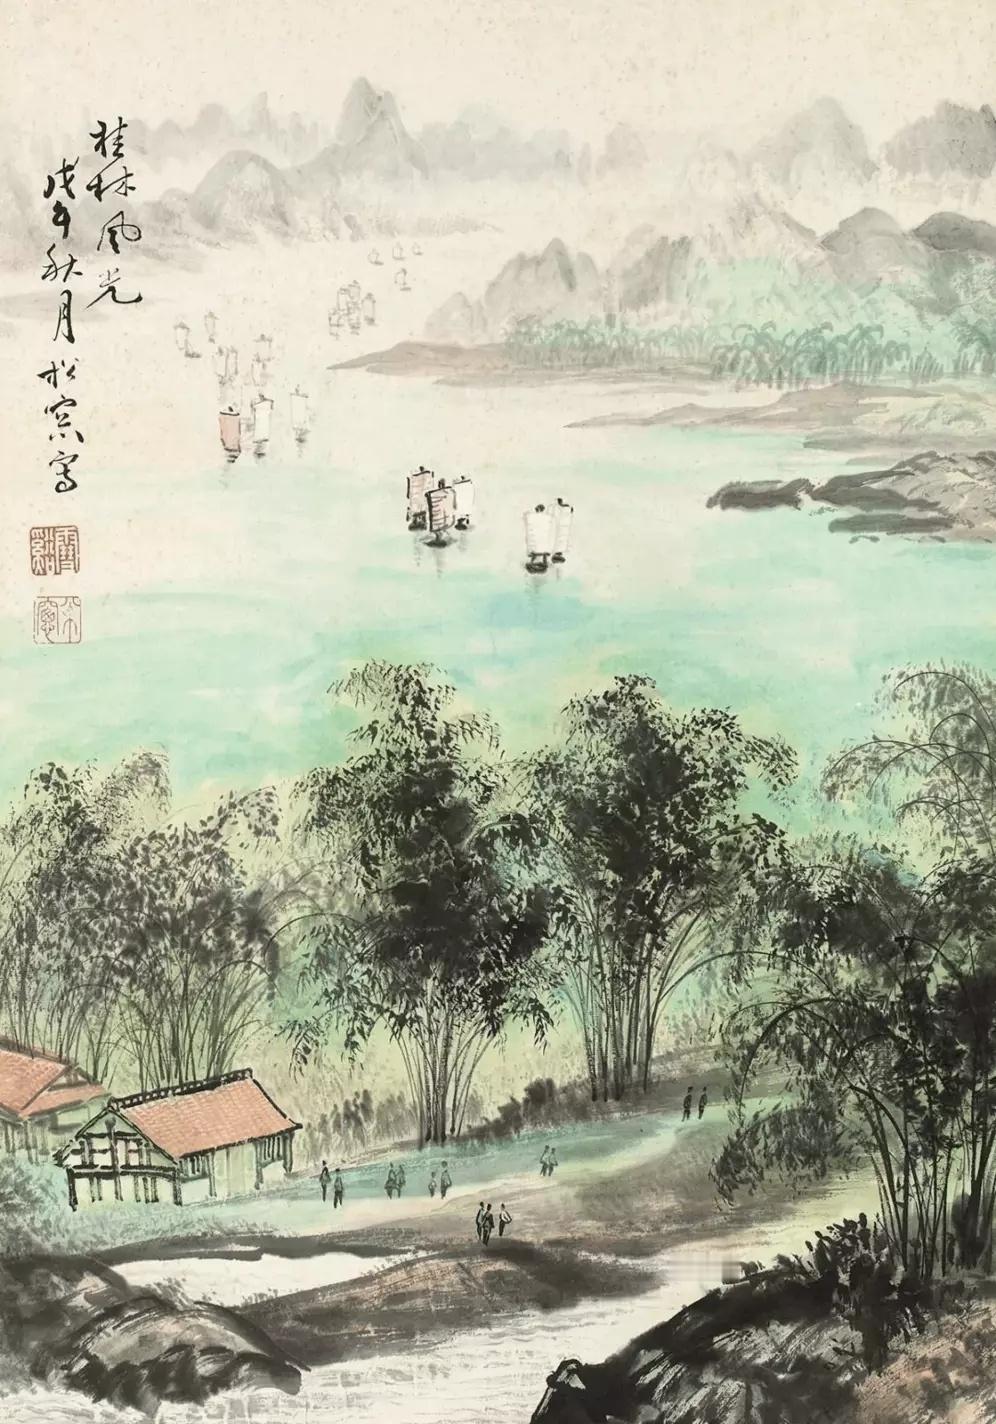 桂林风光
戊午秋月松窓写